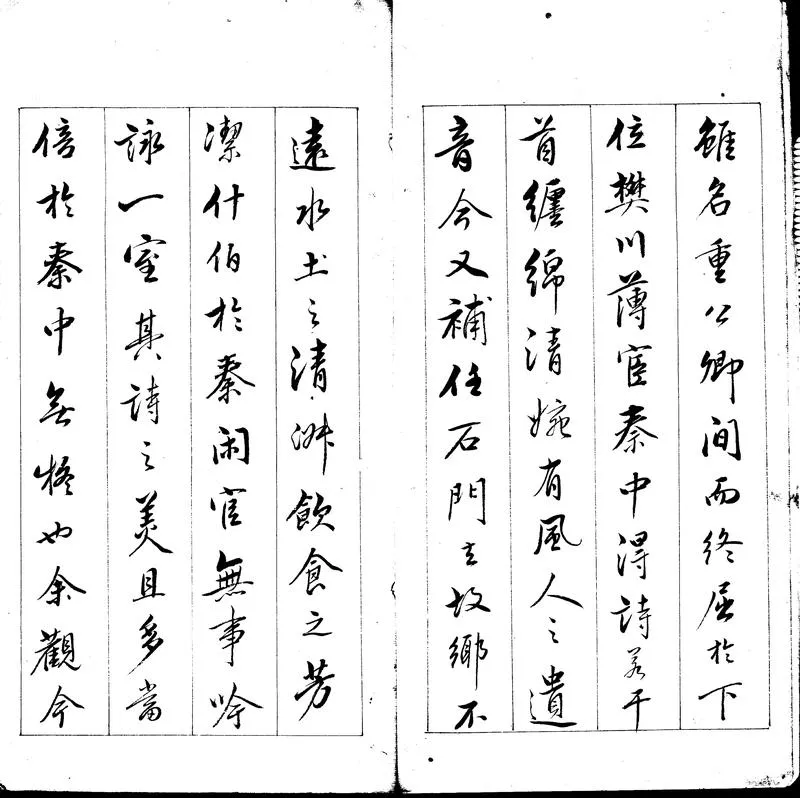 雖名重公卿间而终屈於下
位樊川薄宦秦中得詩若干
首纏綿清婉有風人之遺
音今又補任石門去故鄉不
遠水土之清淑飲食之芳
潔什伯於秦闲官無事吟
詠一室其詩之美且多當
倍於秦中無疑也余觀今